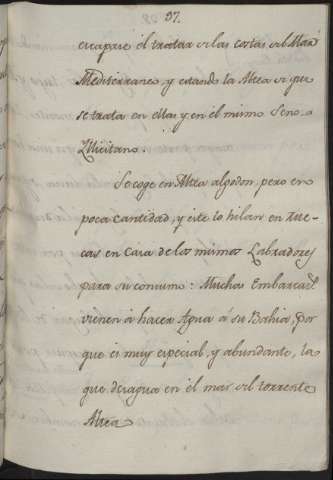 97.
escapase él tratar de las costas del Mar
Mediterraneo, y estando la Altea de que
se trata en ellas y en el mismo Seno
Illicitano.
Se coge en Altea algodon, pero en
poca cantidad, y este lo hilan en
cas en Casa de los mismos Labradores
para su consumo: Muchas Embarcac.s
vienen á hacer Agua á su Bahia, por
que es muy especial, y abundante, la
que desagua en él mar del torrente
Altea